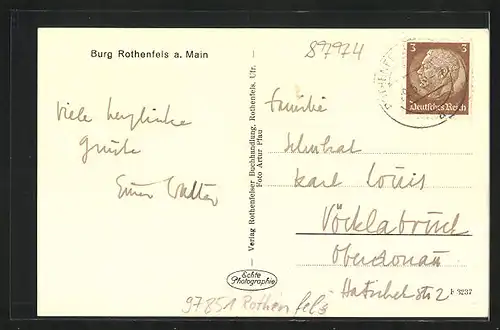 Burg Rothenfels a. Main
87974
3 3
Deutsches Reich
Viele herzliche
Grüße
Euer Walter
Verlag Rothenfelser Buchhandlung, Rothenfels, Ufr.
Foto Artur Pfau
Familie
Karl Louis
Vöcklabruck
Oberdonau
Hatschekstr 2
F 3237
Echte
Photographie
97851 Rothenfels